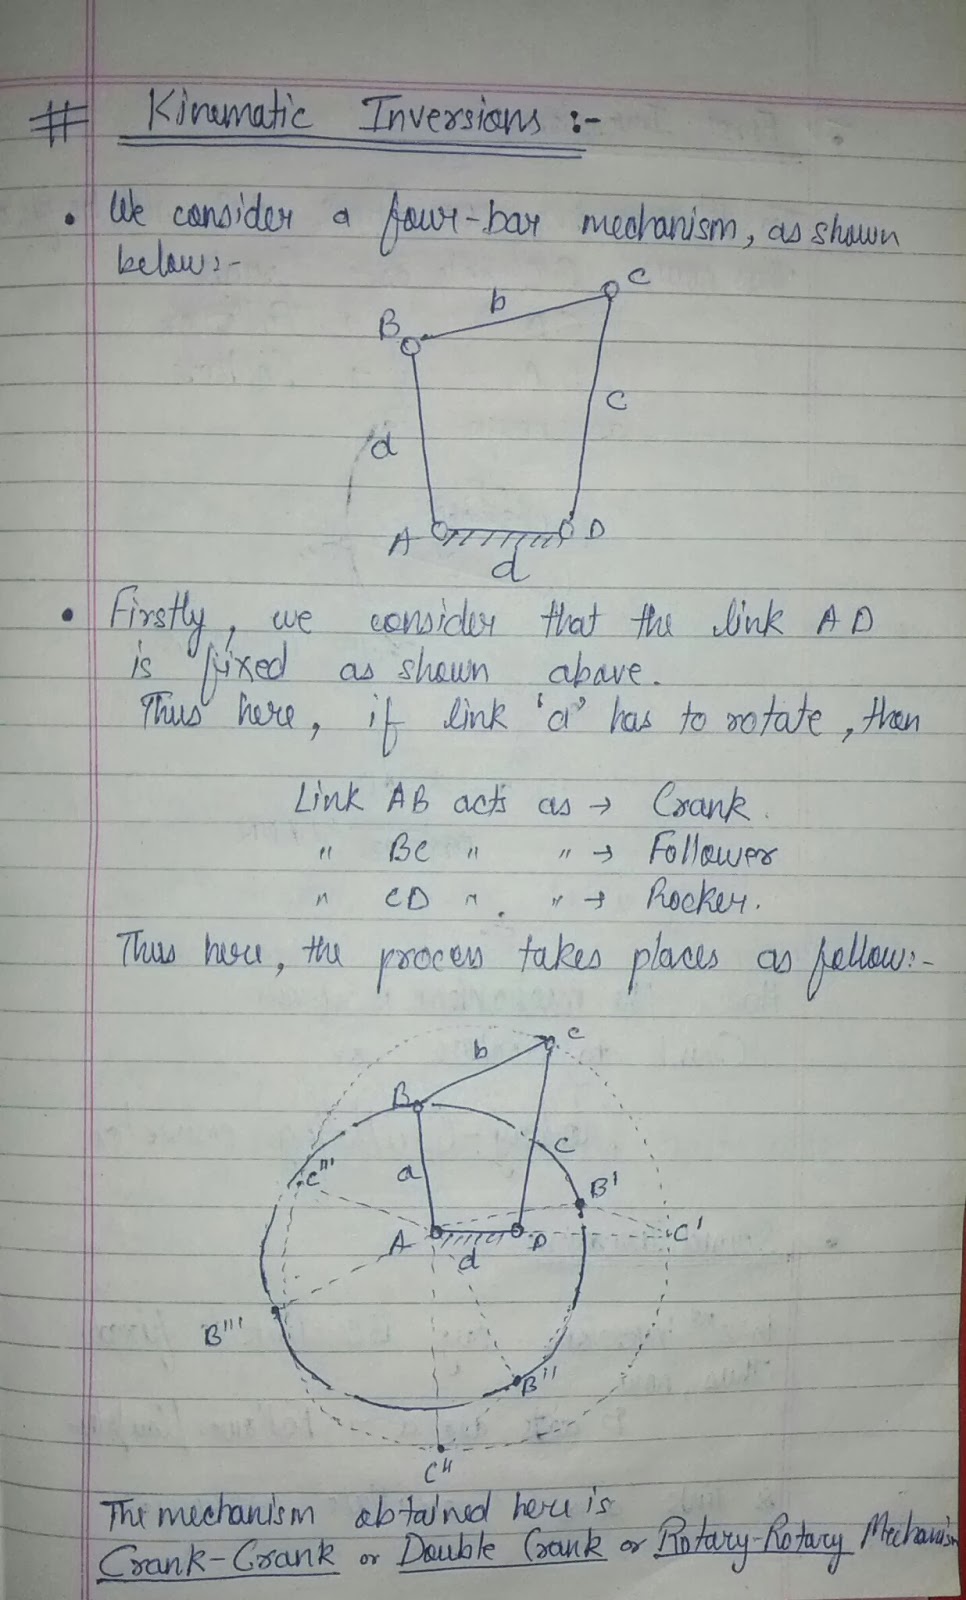 # Kinematic Inversions :-
• We consider a four-bar mechanism, as shown
below:-
C
b
B
c
d
A
D
d
• Firstly, we consider that the link AD
is fixed as shown above.
Thus here, if link 'a' has to rotate, then
Link AB acts as → Crank.
" BC " " → Follower
" CD " " → Rocker.
Thus here, the process takes places as follow:-
C
b
B
c
C'''
a
B'
A
D
C'
d
B'''
B''
C''
The mechanism obtained here is
Crank-Crank or Double Crank or Rotary-Rotary Mechanism